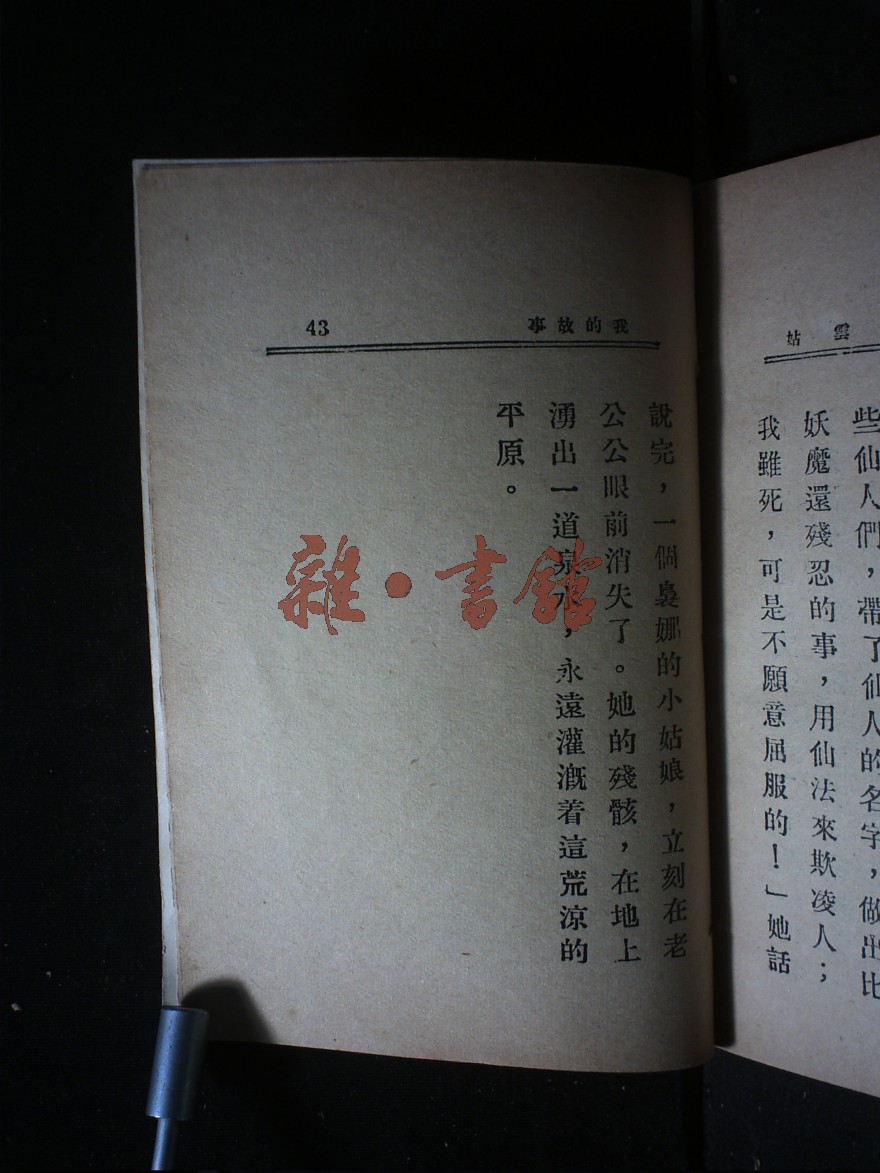 姑　雲
些仙人們，帶了仙人的名字，做出比
妖魔還殘忍的事，用仙法來欺凌人；
我雖死，可是不願意屈服的！」她話
43
事故的我
說完，一個裊娜的小姑娘，立刻在老
公公眼前消失了。她的殘骸，在地上
湧出一道泉水，永遠灌溉着這荒涼的
平原。
雜·書館